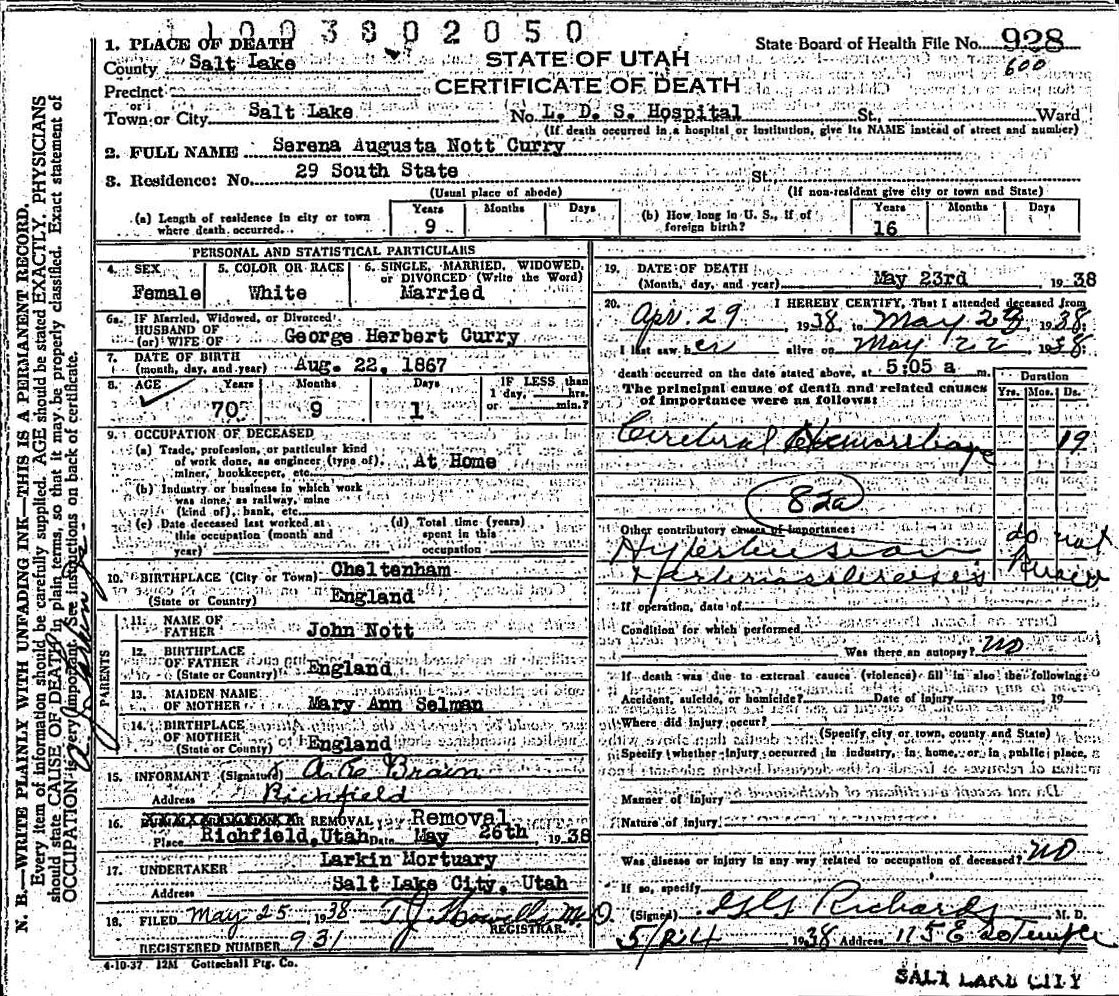 1 1 0 0 3 8 0 2 0 5 0
1. PLACE OF DEATH
County Salt Lake
Precinct
or
Town or City Salt Lake
STATE OF UTAH
CERTIFICATE OF DEATH
State Board of Health File No. 928
600
No. L. D. S. Hospital St., Ward
(If death occurred in a hospital or institution, give its NAME instead of street and number)
2. FULL NAME Serena Augusta Nott Curry
3. Residence: No. 29 South State St.
(Usual place of abode) (If non-resident give city or town and State)
(a) Length of residence in city or town where death occurred. Years 9 Months Days
(b) How long in U. S., if of foreign birth? Years 16 Months Days
PERSONAL AND STATISTICAL PARTICULARS
4. SEX Female
5. COLOR OR RACE White
6. SINGLE, MARRIED, WIDOWED, or DIVORCED (Write the Word) Married
6a. If Married, Widowed, or Divorced
HUSBAND OF
(or) WIFE OF George Herbert Curry
7. DATE OF BIRTH
(month, day, and year) Aug. 22, 1867
8. AGE Years 70 Months 9 Days 1
IF LESS than
1 day, hrs.
or min.?
9. OCCUPATION OF DECEASED
(a) Trade, profession, or particular kind
of work done, as engineer (type of), At Home
miner, bookkeeper, etc.
(b) Industry or business in which work
was done, as railway, mine
(kind of), bank, etc.
(c) Date deceased last worked at
this occupation (month and
year)
(d) Total time (years)
spent in this
occupation
10. BIRTHPLACE (City or Town) Cheltenham
(State or Country) England
PARENTS
11. NAME OF
FATHER John Nott
12. BIRTHPLACE
OF FATHER England
(State or Country)
13. MAIDEN NAME
OF MOTHER Mary Ann Selman
14. BIRTHPLACE
OF MOTHER England
(State or Country)
15. INFORMANT (Signature)
Address Richfield
16. OR REMOVAL Removal
Place Richfield, Utah Date May 26th, 1938
17. UNDERTAKER Larkin Mortuary
Address Salt Lake City, Utah
18. FILED May 25 1938 T. J. Howells M.D.
REGISTRAR.
REGISTERED NUMBER 931
4-10-37 12M Gottschall Ptg. Co.
19. DATE OF DEATH
(Month, day, and year) May 23rd 1938
20. I HEREBY CERTIFY, That I attended deceased from
Apr. 29 1938 to May 23 1938.
I last saw her alive on May 22 1938
death occurred on the date stated above, at 5:05 a m.
The principal cause of death and related causes
of importance were as follows:
Duration
Yrs. Mos. Ds.
Cerebral Hemorrhage 19
82a
Other contributory causes of importance:
Hypertension do not
& Arteriosclerosis know
If operation, date of
Condition for which performed
Was there an autopsy? no
If death was due to external causes (violence) fill in also the following:
Accident, suicide, or homicide? Date of Injury 19
Where did injury occur?
(Specify city or town, county and State)
Specify whether injury occurred in industry, in home, or in public place,
Manner of Injury
Nature of Injury
Was disease or injury in any way related to occupation of deceased? no
If so, specify
(Signed) G G Richards M. D.
5/24 1938 Address 115 E So Temple
SALT LAKE CITY
N. B.—WRITE PLAINLY WITH UNFADING INK—THIS IS A PERMANENT RECORD.
Every item of information should be carefully supplied. AGE should be stated EXACTLY. PHYSICIANS
should state CAUSE OF DEATH in plain terms, so that it may be properly classified. Exact statement of
OCCUPATION is very important. See instructions on back of certificate.